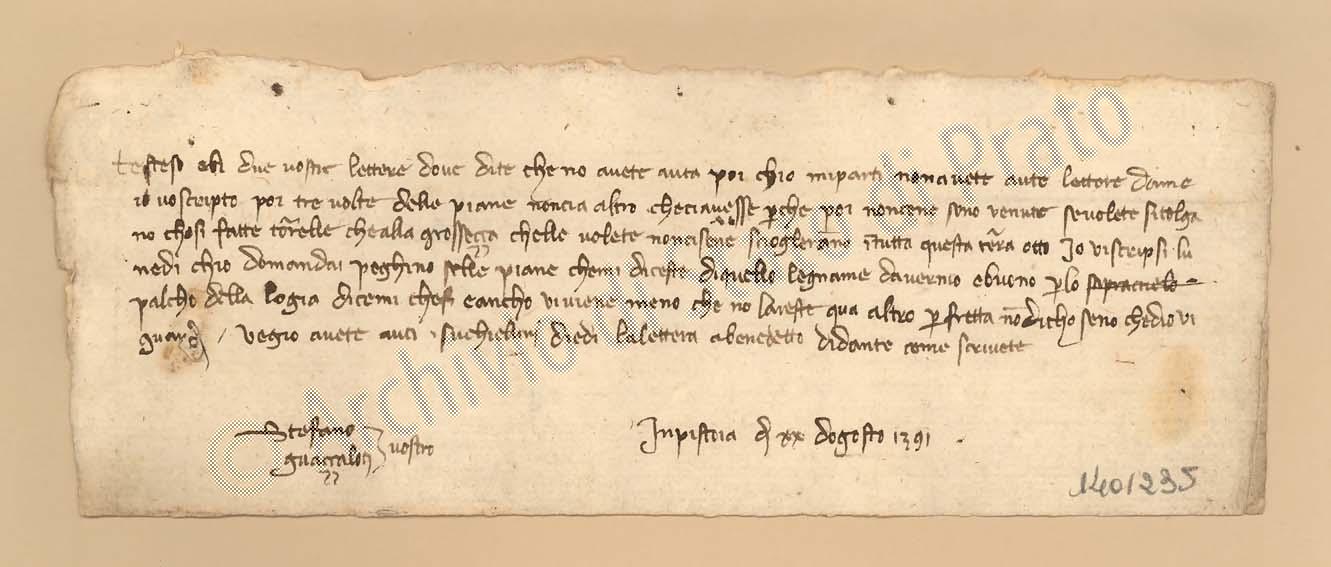 Testeso ebi due vostre lettere dove dite che no avete auta poi chio mi parti non avete aute lettere dame
io vo scripto poi tre volte delle piane non cia altro che ci avesse perche poi non cene sono venute se volete si tolga
no chosi fatte torelle che alla grossezza chelle volete non ci sene sciogleranno in tutta questa terra otto Io vi scripsi lu
nedi chio domandai peghino selle piane chemi diceste di quello legname da vernio e buono per lo sapracielo
palcho della logia dicemi chesi e ancho vi viene meno che no lareste qua altro per fretta non dicho seno che dio vi
guardi / vegio avete auti i suchielini diedi la lettera a benedetto di dante come scrivete
Stefano
guazzaloti vostro
In pistoia di xx dogosto 1391
1401235
© Archivio di Stato di Prato